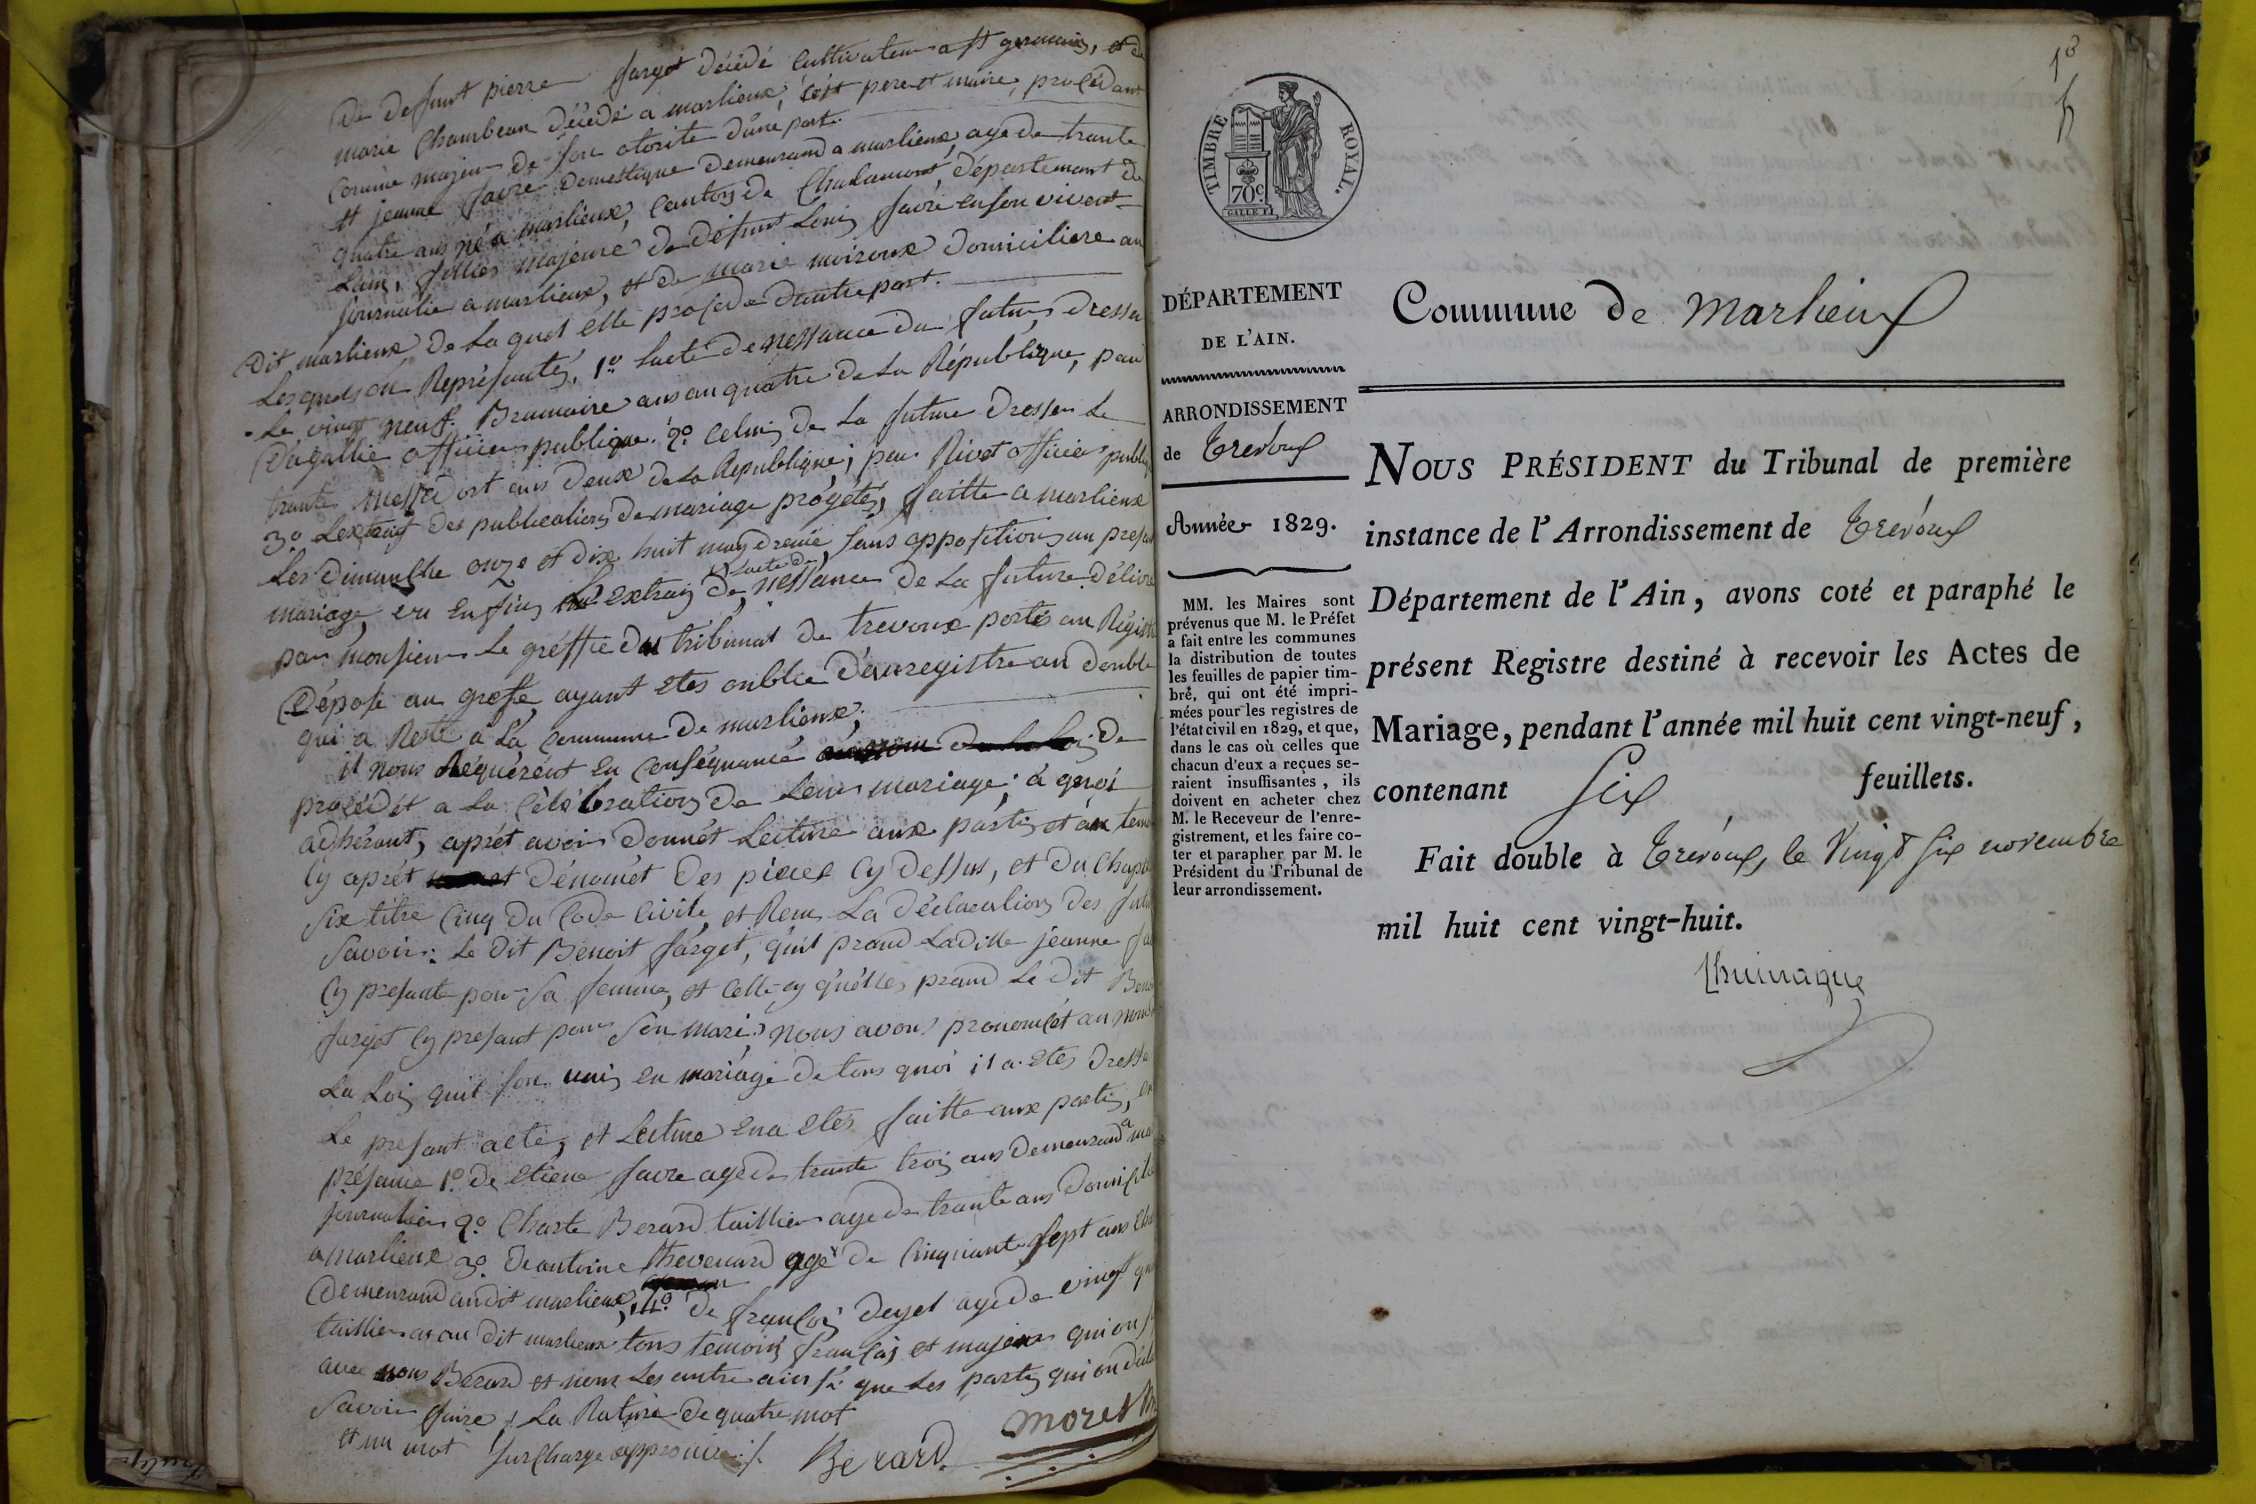 de defunt pierre farget décédé cultivateur a st germain, et de
marie Chambeau décédé a marlieux, cest pere et maire, procédant
comme majeur de son otorite d'une part.
et jeanne favre domestique demeurand a marlieux, age de trante
quatre ans né a marlieux, canton de Chalamont, département de
Lain, fillies majeure de défunt Loui favre en son vivent
journalié a marlieux, et de marie moiroux domiciliere au
dit marlieux de la quel elle procede dautre part.
Lesquels on Représanté, 1º Lacte de nessance du futur dressu
Le vingt neuf Brumaire ans an quatre de La République, par
Dagallié officier publique. 2º celui de La future dresser Le
trante messidort ans deux de La République, par Rivet officier public
3º Lextrait des publications de mariage progétés, faitte a marlieux
Les dimanche onze et dix huit may dernié, sans opposition au presant
mariage, en enfin extrait de Lacte de nessance de La future délivré
par monsieur Le gréffié du tribunal de trevoux portés au Régistre
déposé au greffe, ayant etes oublié d'anregistre au double
qui a Resté a La commune de marlieux,
il nous Réquérént en conséquance de
procédét a La célébration de Leur mariage; a quoi
adhérant, aprét avoir donnét Lecture aux partis et au temoin
cy aprét dénomét des pieces cy dessus, et du chapitre
six titre cinq du code civile, et Recu La déclaration des futur
savoir: Le dit Benoit farget, quil prand Laditte jeanne fa
cy presante pour sa femme, et celle-cy quélles prand Le dit Benoit
farget cy presant pour son mari, nous avons prononcét au nom de
La Loi quil son unis en mariage de tous quoi il a etes dressé
Le presant acte, et Lecture en a etes faitte aux partis, en
présance 1º de etiene favre age de trante trois ans demeurand a ma
journalier 2º Charle Berard taillier age de trante ans domicilié
a marlieux 3º de antoine thevenard agé de cinquante sept ans
demeurand au dit marlieux, 4º de françoi deget age de vingt
taillier au dit marlieux tous temoins françaj et majeur qui on
avec nous Berard et nom Les autre ainsi que Les partis qui on déclaré
savoir faire, La Rature de quatre mot
et un mot surcharge approuvé ./.
Berard moret
18
TIMBRE ROYAL.
70 c.
DÉPARTEMENT
DE L'AIN.
ARRONDISSEMENT
de Trevoux
Année 1829.
MM. les Maires sont
prévenus que M. le Préfet
a fait entre les communes
la distribution de toutes
les feuilles de papier tim-
bré, qui ont été impri-
mées pour les registres de
l'état civil en 1829, et que,
dans le cas où celles que
chacun d'eux a reçues se-
raient insuffisantes, ils
doivent en acheter chez
M. le Receveur de l'enre-
gistrement, et les faire co-
ter et parapher par M. le
Président du Tribunal de
leur arrondissement.
Commune de Marlieux
NOUS PRÉSIDENT du Tribunal de première
instance de l'Arrondissement de Trévoux
Département de l'Ain, avons coté et paraphé le
présent Registre destiné à recevoir les Actes de
Mariage, pendant l'année mil huit cent vingt-neuf,
contenant Six feuillets.
Fait double à Trévoux, le Vingt six novembre
mil huit cent vingt-huit.